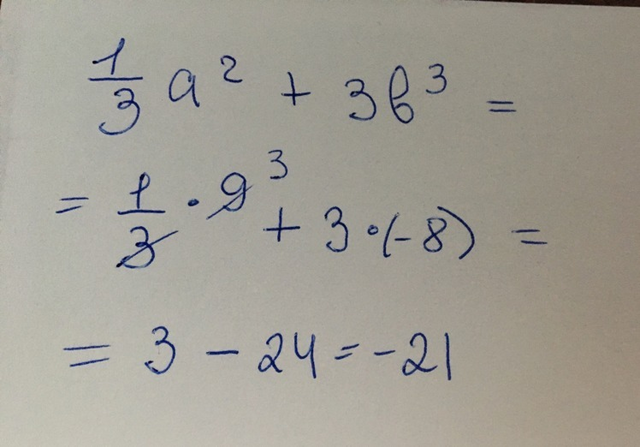 1/3 a² + 3b³ =
= 1/3 · 9 ³ + 3 · (-8) =
= 3 - 24 = -21